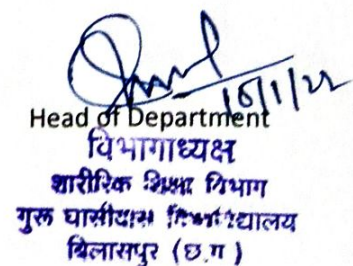 16/1/22
Head of Department
विभागाध्यक्ष
शारीरिक शिक्षा विभाग
गुरू घासीदास विश्वविद्यालय
बिलासपुर (छ.ग)